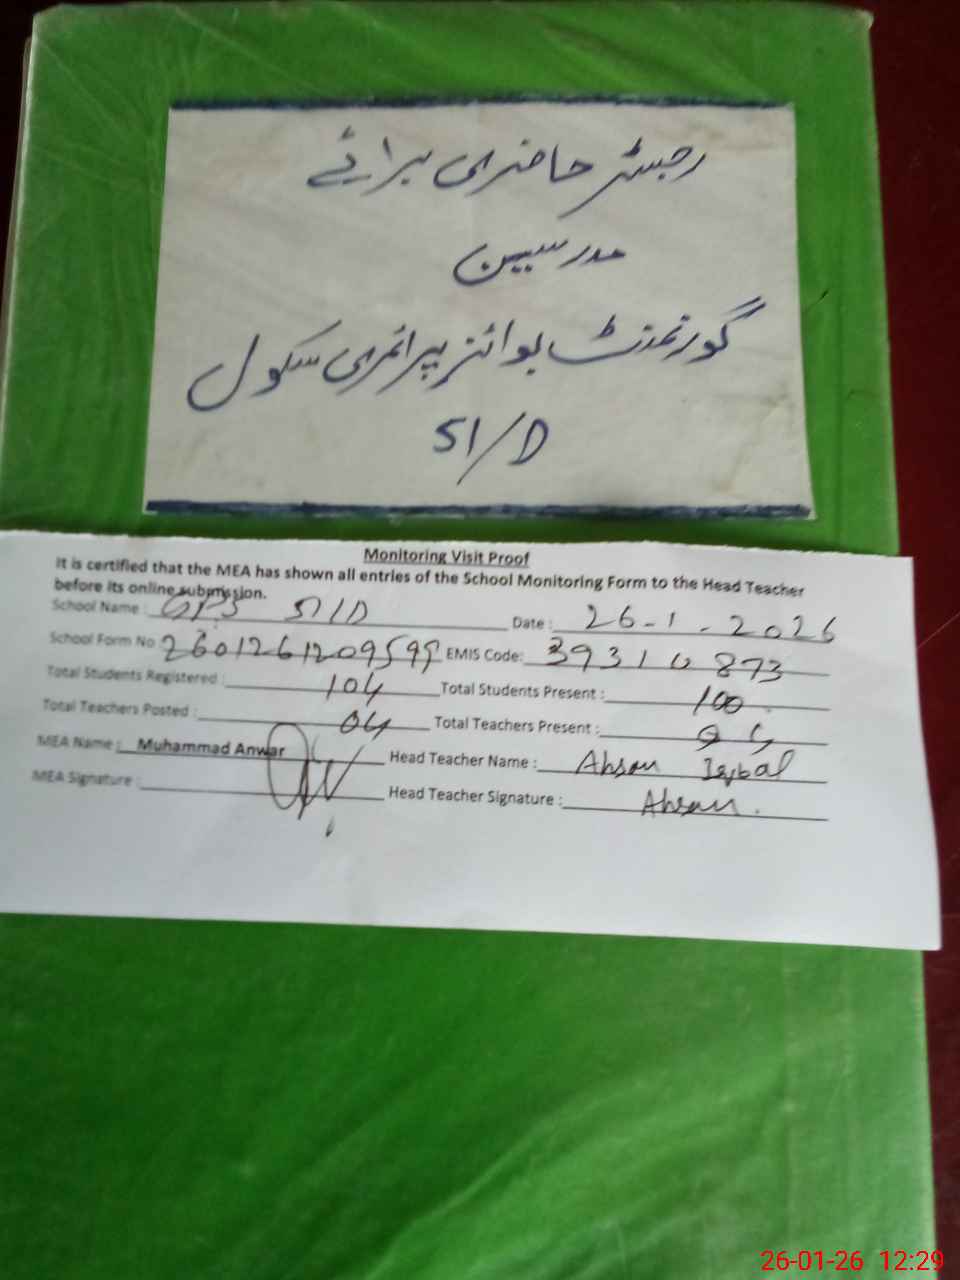 رجسٹر حاضری برائے
مدرسین
گورنمنٹ بوائز پرائمری سکول
51/D
Monitoring Visit Proof
It is certified that the MEA has shown all entries of the School Monitoring Form to the Head Teacher
before its online submission.
School Name : GPS 51/D Date : 26-1-2026
School Form No 2601261209599 EMIS Code: 39310873
Total Students Registered : 104 Total Students Present : 100
Total Teachers Posted : 04 Total Teachers Present :
MEA Name : Muhammad Anwar Head Teacher Name : Ahsan Iqbal
MEA Signature : Head Teacher Signature : Ahsan.
26-01-26 12:29